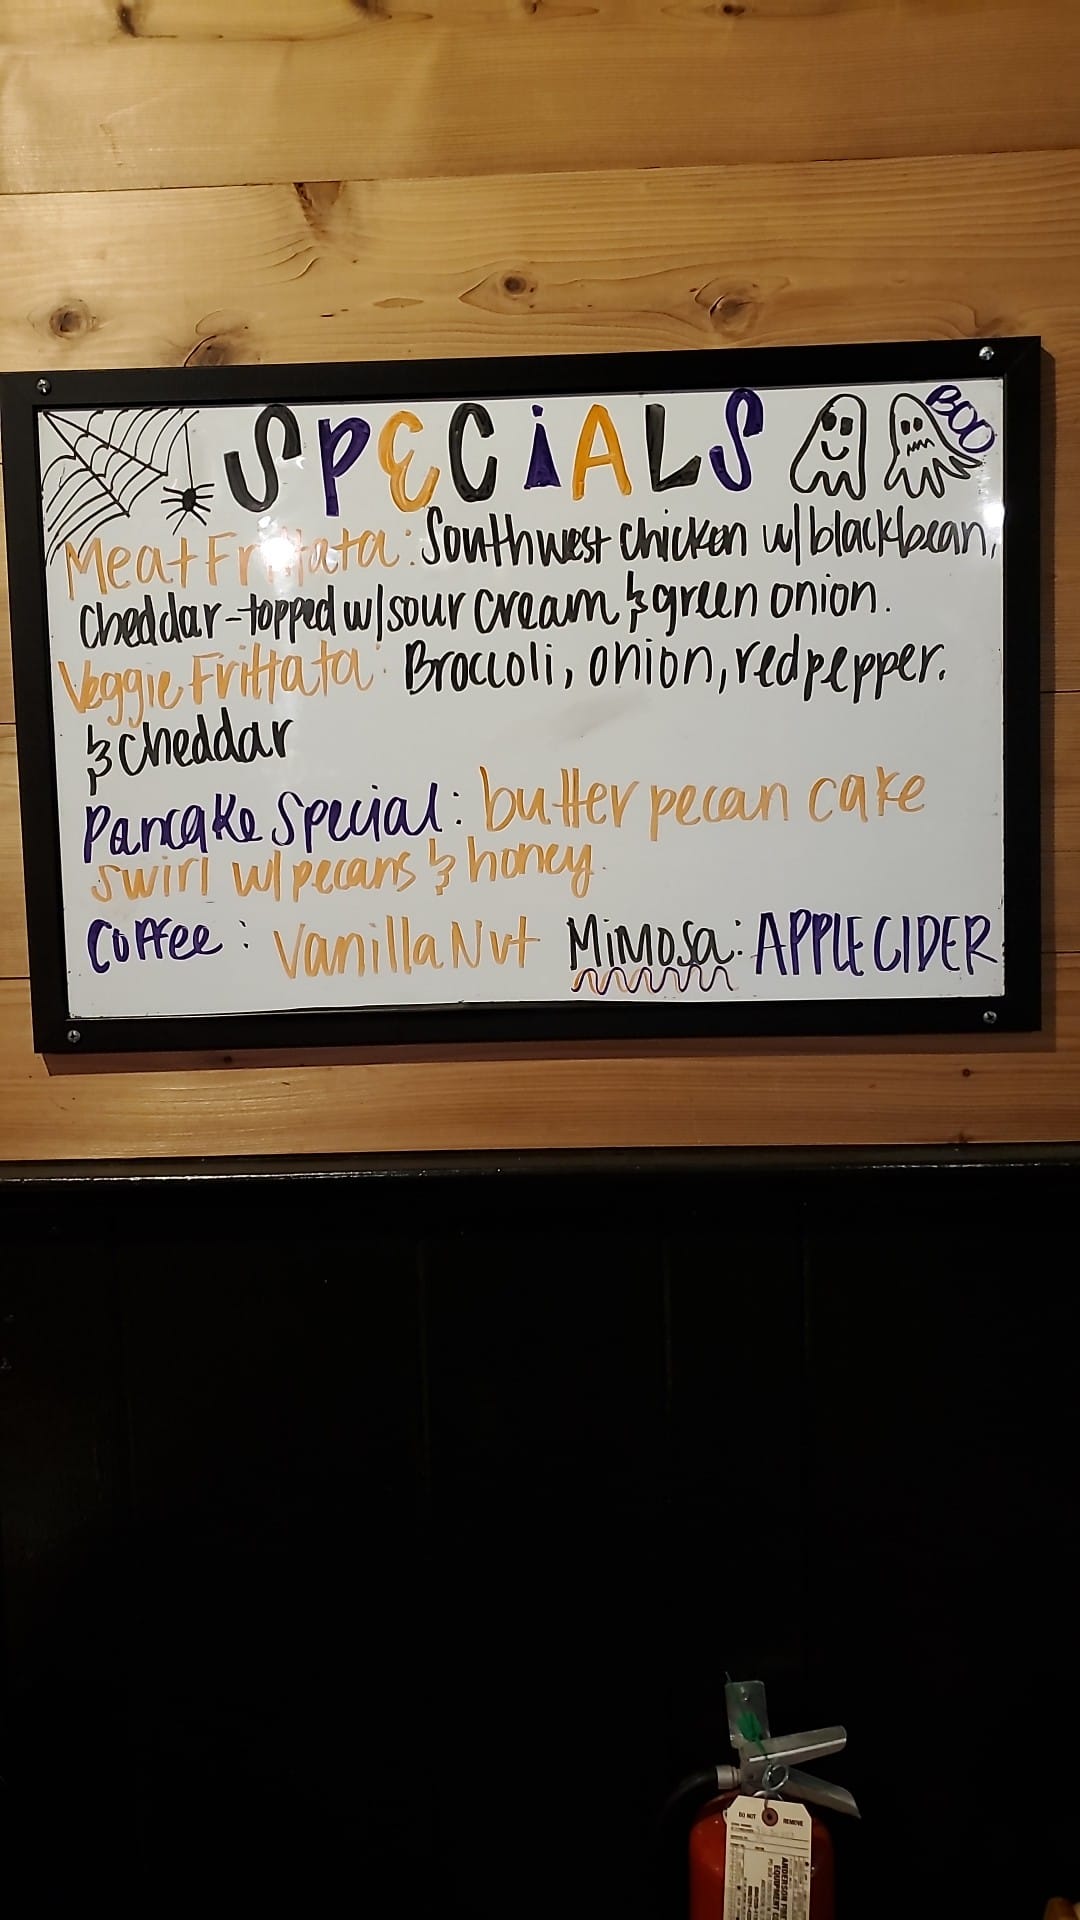 SPECiALS
BOO
Meat Frittata: Southwest chicken w/ blackbean,
cheddar - topped w/ sour cream & green onion.
Veggie Frittata: Broccoli, onion, red pepper.
& cheddar
Pancake Special: butter pecan cake
swirl w/ pecans & honey.
Coffee: Vanilla Nut Mimosa: APPLE CIDER
DO NOT REMOVE
ANDERSON FIRE
EQUIPMENT CO